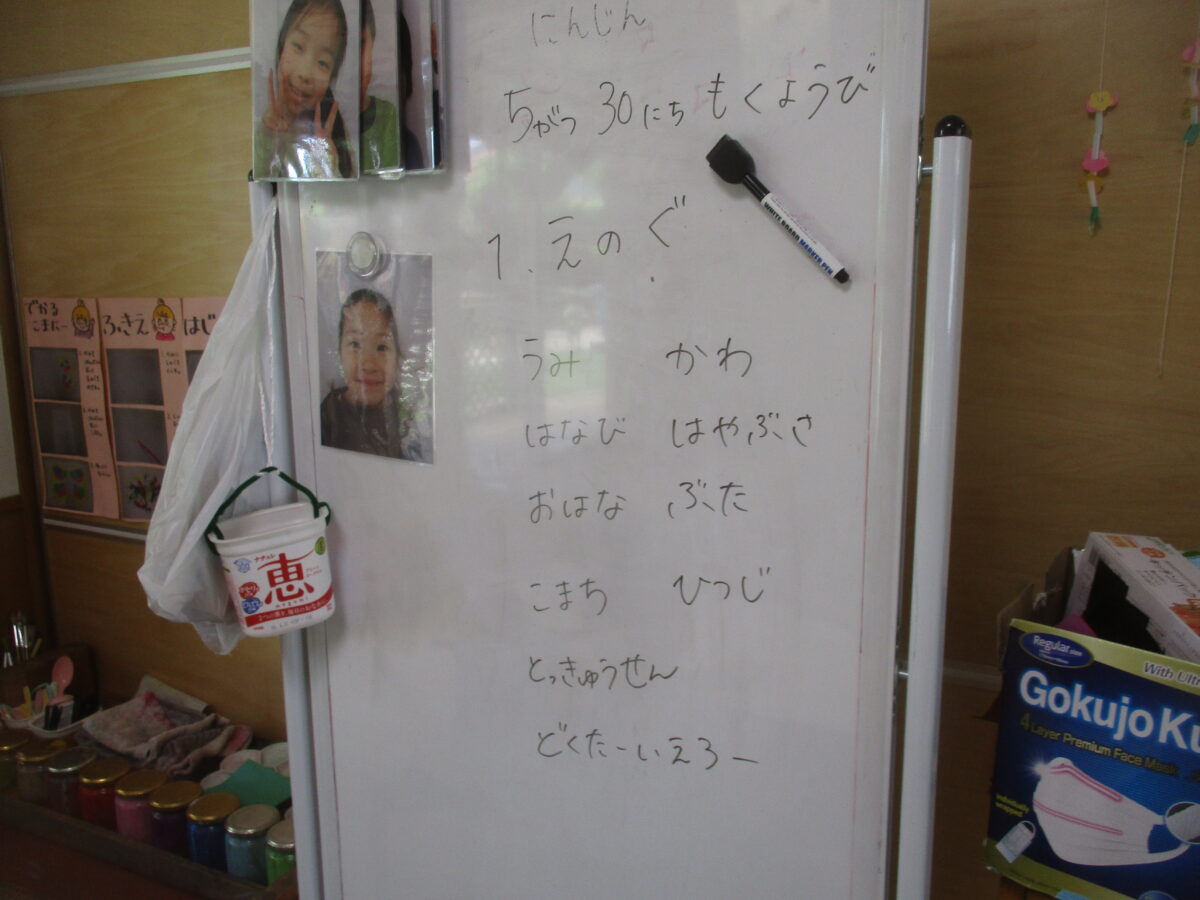 にんじん
5がつ 30にち もくようび
1. えのぐ
うみ かわ
はなび はやぶさ
おはな ぶた
こまち ひつじ
とっきゅうせん
どくたーいえろー
WHITE BOARD MARKER PEN
でかるこまにー
ふきえ
はじ
ナチュレ
恵
megumi
Regular size
With Ult
Gokujo Ku
4 Layer Premium Face Mask
individually wrapped